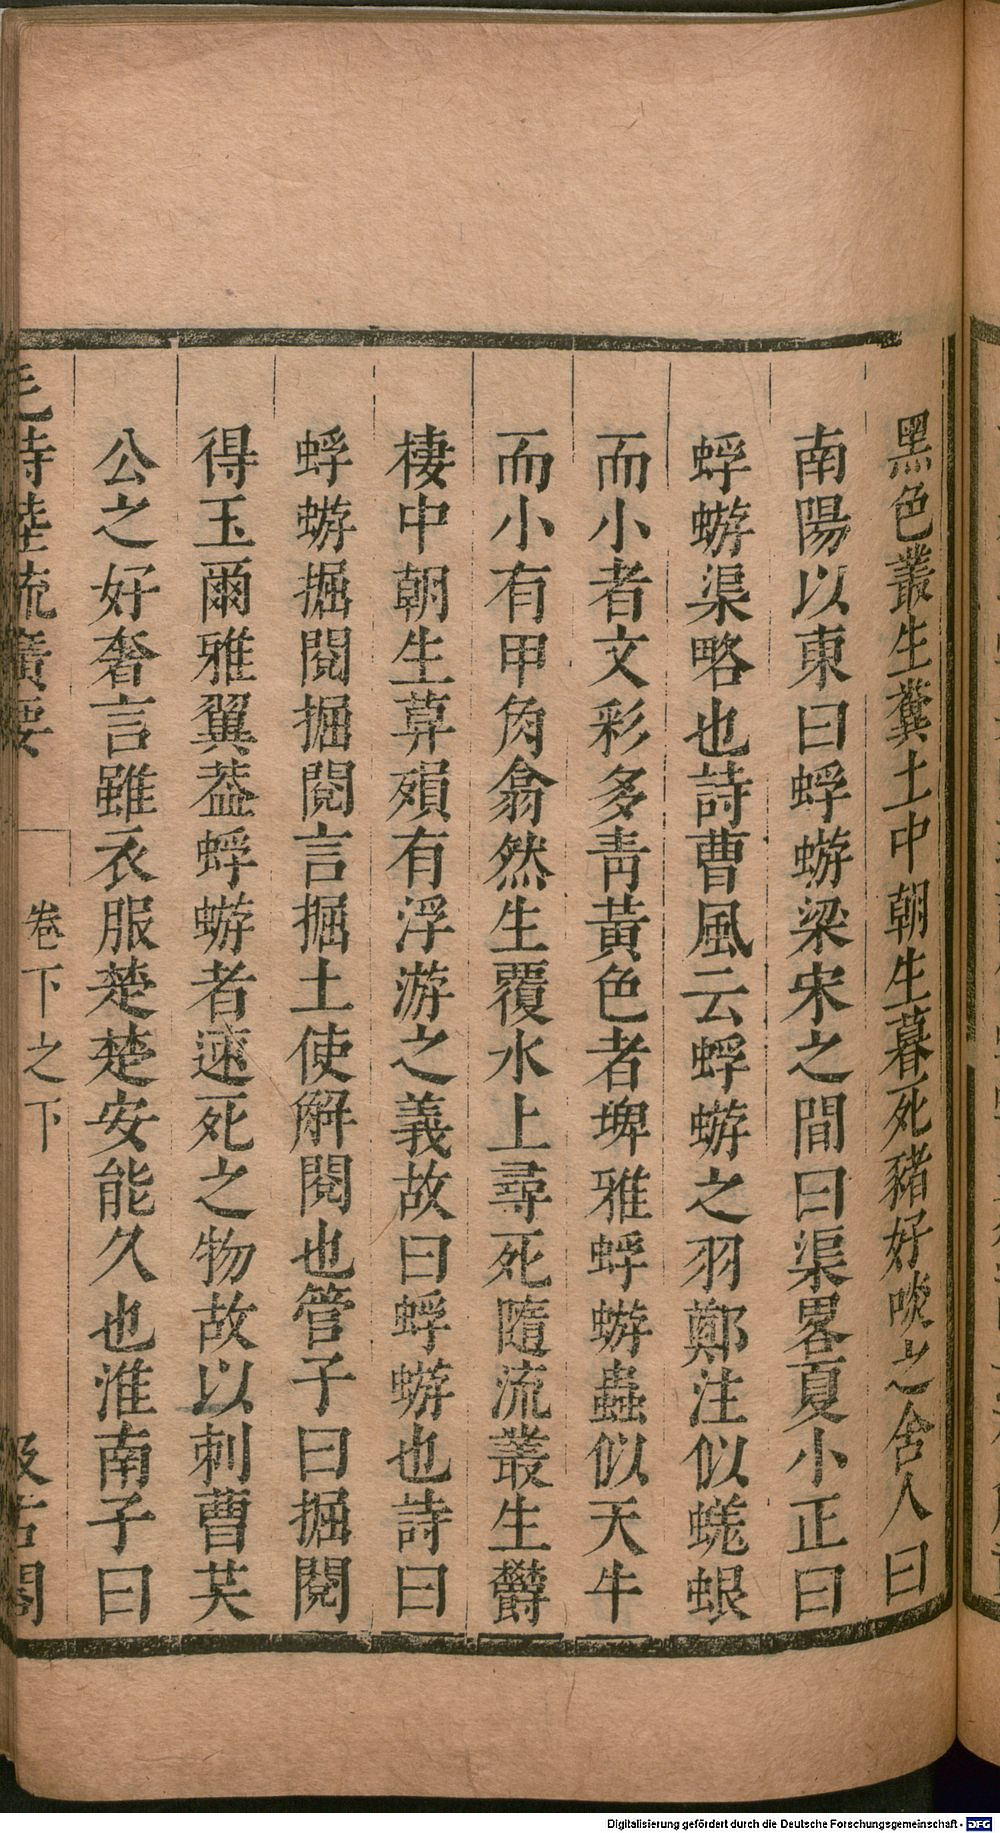 黑色叢生糞土中朝生暮死豬好啖之舍人曰
南陽以東曰蜉蝣梁宋之間曰渠畧夏小正曰
蜉蝣渠略也詩曹風云蜉蝣之羽鄭注似蜣蜋
而小者文彩多青黃色者埤雅蜉蝣蟲似天牛
而小有甲角翕然生覆水上尋死隨流叢生欝
棲中朝生莫殞有浮游之義故曰蜉蝣也詩曰
蜉蝣掘閱掘閱言掘土使解閱也管子曰掘閱
得玉爾雅翼葢蜉蝣者速死之物故以刺曹共
公之好奢言雖衣服楚楚安能久也淮南子曰
毛詩陸疏廣要 卷下之下 汲古閣
Digitalisierung gefördert durch die Deutsche Forschungsgemeinschaft - DFG